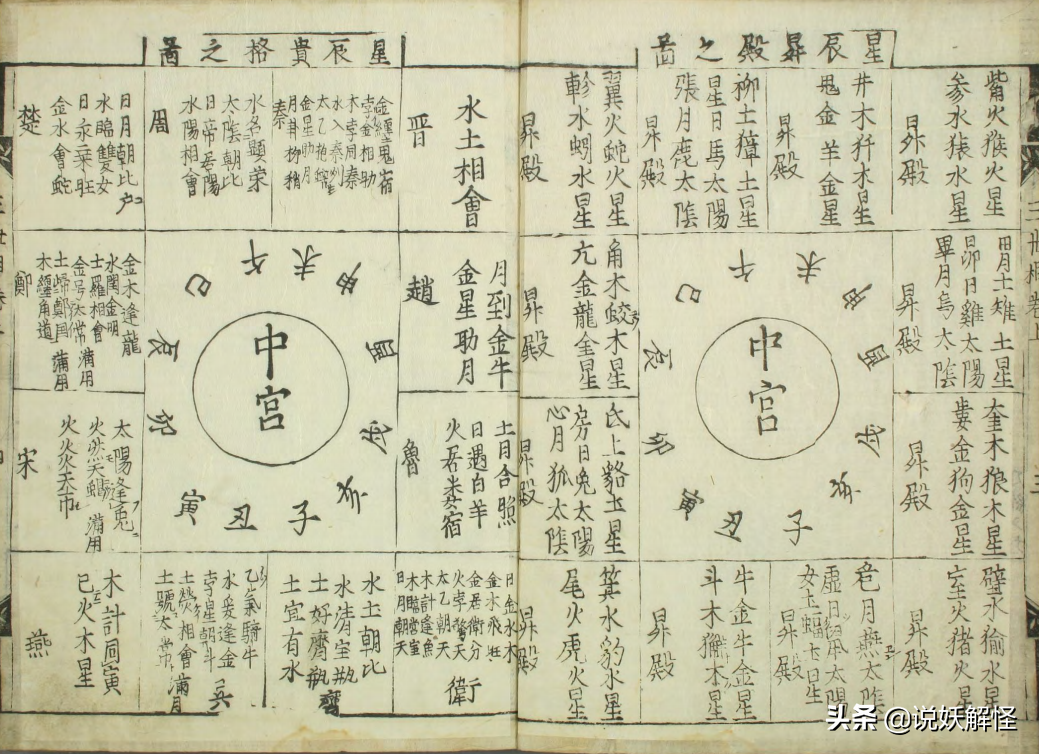 星辰昇殿之啚
觜火猴火星
参水猿水星
昇殿
井木犴木星
鬼金羊金星
昇殿
柳土獐土星
星日馬太陽
張月鹿太陰
昇殿
翼火蛇火星
軫水蚓水星
昇殿
胃土雉土星
昴日雞太陽
畢月烏太陰
昇殿
角木蛟木星
亢金龍金星
昇殿
奎木狼木星
婁金狗金星
昇殿
氐土貉土星
房日兔太陽
心月狐太陰
昇殿
壁水㺄水星
室火猪火星
昇殿
危月燕太陰
虚日鼠太陽
女土蝠土星
昇殿
牛金牛金星
斗木獬木星
昇殿
箕水豹水星
尾火虎火星
昇殿
中宮
巳
午
未
申
酉
戌
亥
子
丑
寅
卯
辰
三世相卷上
三
星辰貴格之啚
水土相會
晋
金纏鬼宿
孛金相助
木孛周秦
水入秦州
太乙抱蟹
金星助月
月井柳稍
秦
水名顯荣
太陰朝比
日帝居陽
水陽相會
周
日月朝比
水臨雙女
日永乗旺
金水會蛇
楚
月到金牛
金星助月
趙
金木逢龍
水閣金明
土羅相會
土歸鄭国
木纏角道
鄭
土月合照
日遇白羊
火居娄宿
魯
太陽逢兔
火炎天市
宋
金水飛壯
金居衛分
太乙朝天
木計逢魚
木臨営室
日月朝天
衛
水土朝比
水清宝瓶
土好齊瓶
土宜有水
齊
乙氣騎牛
水爰逢金
孛星朝斗
吴
木計同寅
巳火木星
燕
中宮
巳
午
未
申
酉
戌
亥
子
丑
寅
卯
辰
头条 @说妖解怪